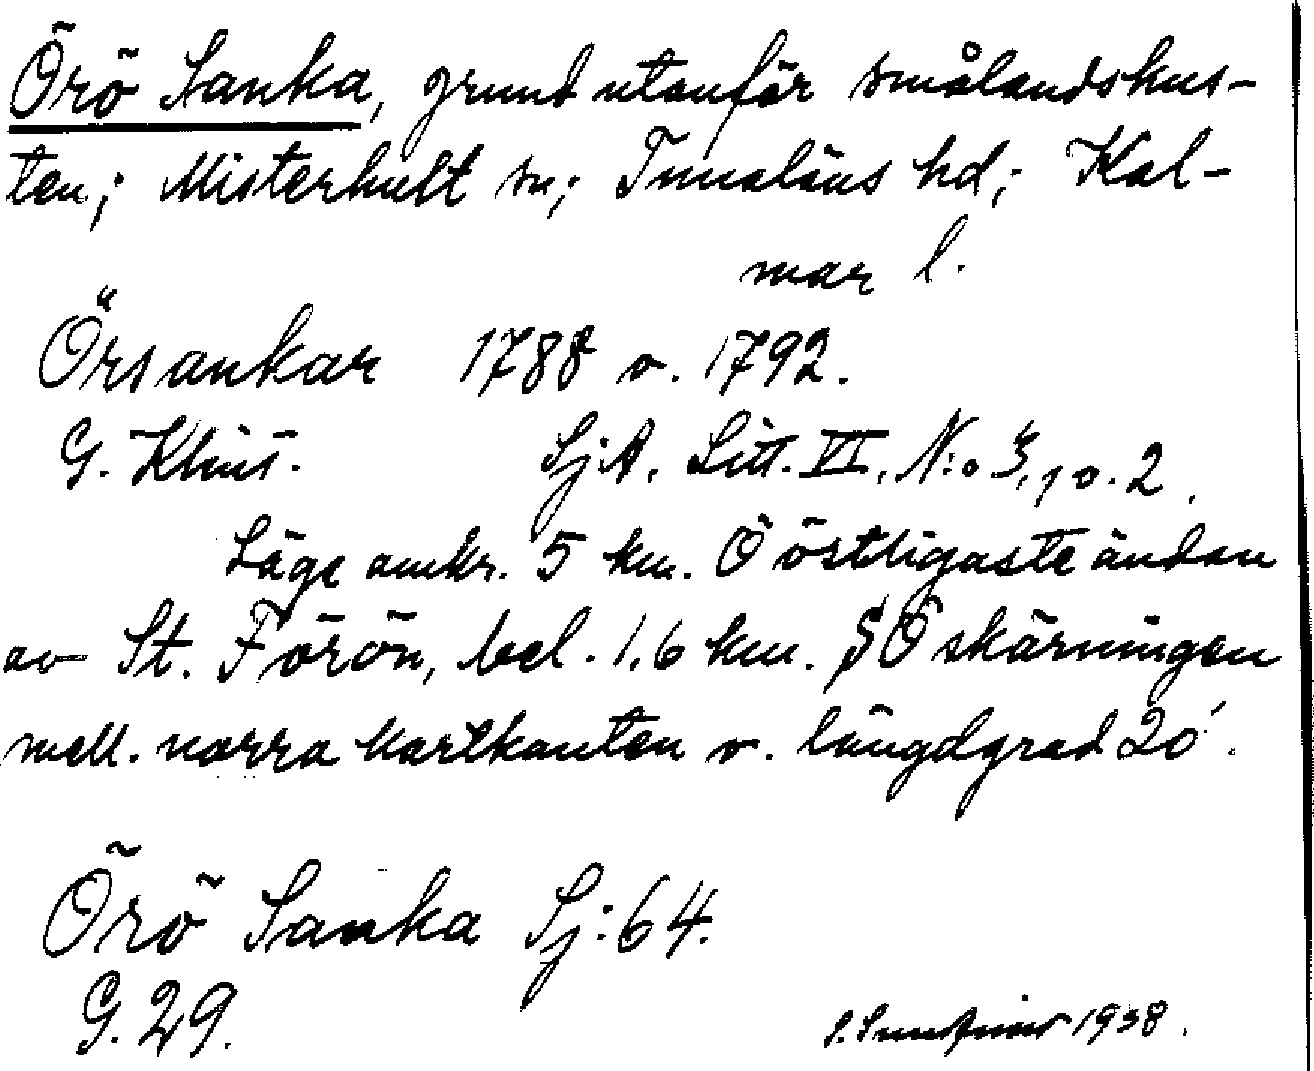 Örö Sanka, grund utanför smålandskus-
ten; Misterhult sn; Tunaläns hd; Kal-
mar l.
Örsankar 1788 o. 1792.
G. Klint. Sj.A. Litt. VI. N:o 3, 1 o. 2.
Läge omkr. 5 km. Ö östligaste ändan
av St. Förön, bel. 1.6 km. SÖ skärningen
mell. norra kartkanten o. längdgrad 20'.
Örö Sanka Sj:64.
G. 29.
1938.